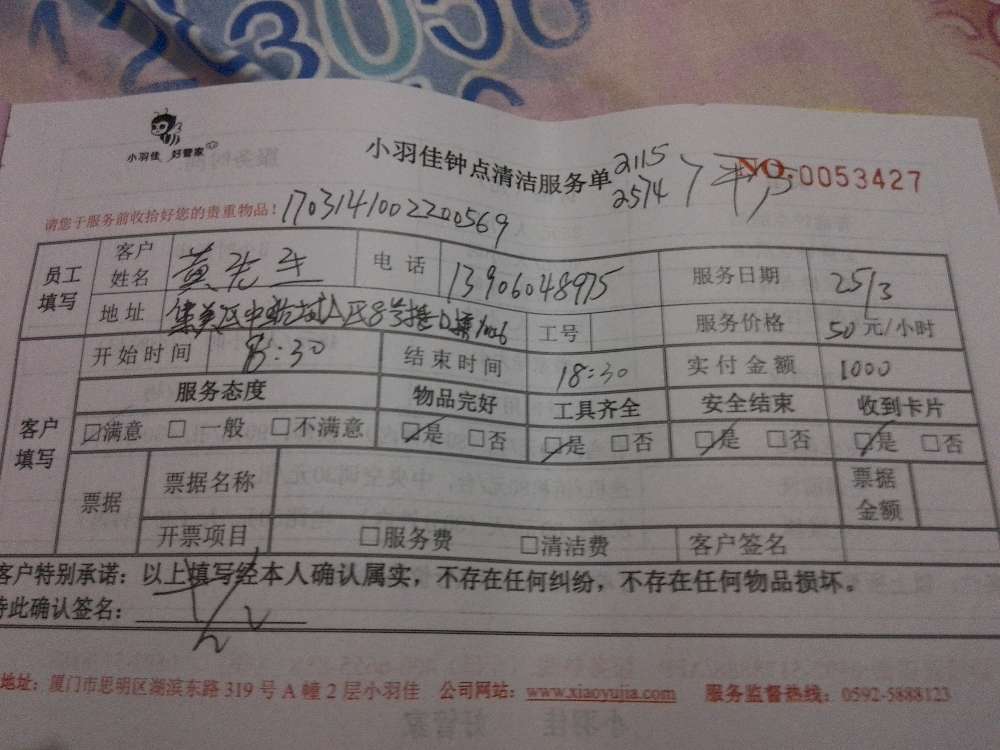 小羽佳 好管家
小羽佳钟点清洁服务单
2115
2574
NO.0053427
请您于服务前收拾好您的贵重物品！
1703141002200569
员工填写 客户姓名 黄先生 电话 13906048975 服务日期 25/3
地址 集美区 工号 服务价格 50元/小时
客户填写 开始时间 8:30 结束时间 18:30 实付金额 1000
服务态度 物品完好 工具齐全 安全结束 收到卡片
☑满意 □一般 □不满意 ☑是 □否 ☑是 □否 ☑是 □否 ☑是 □否
票据 票据名称 票据金额
开票项目 □服务费 □清洁费 客户签名
客户特别承诺：以上填写经本人确认属实，不存在任何纠纷，不存在任何物品损坏。
特此确认签名：
地址：厦门市思明区湖滨东路 319 号 A 幢 2 层小羽佳 公司网站：www.xiaoyujia.com 服务监督热线：0592-5888123